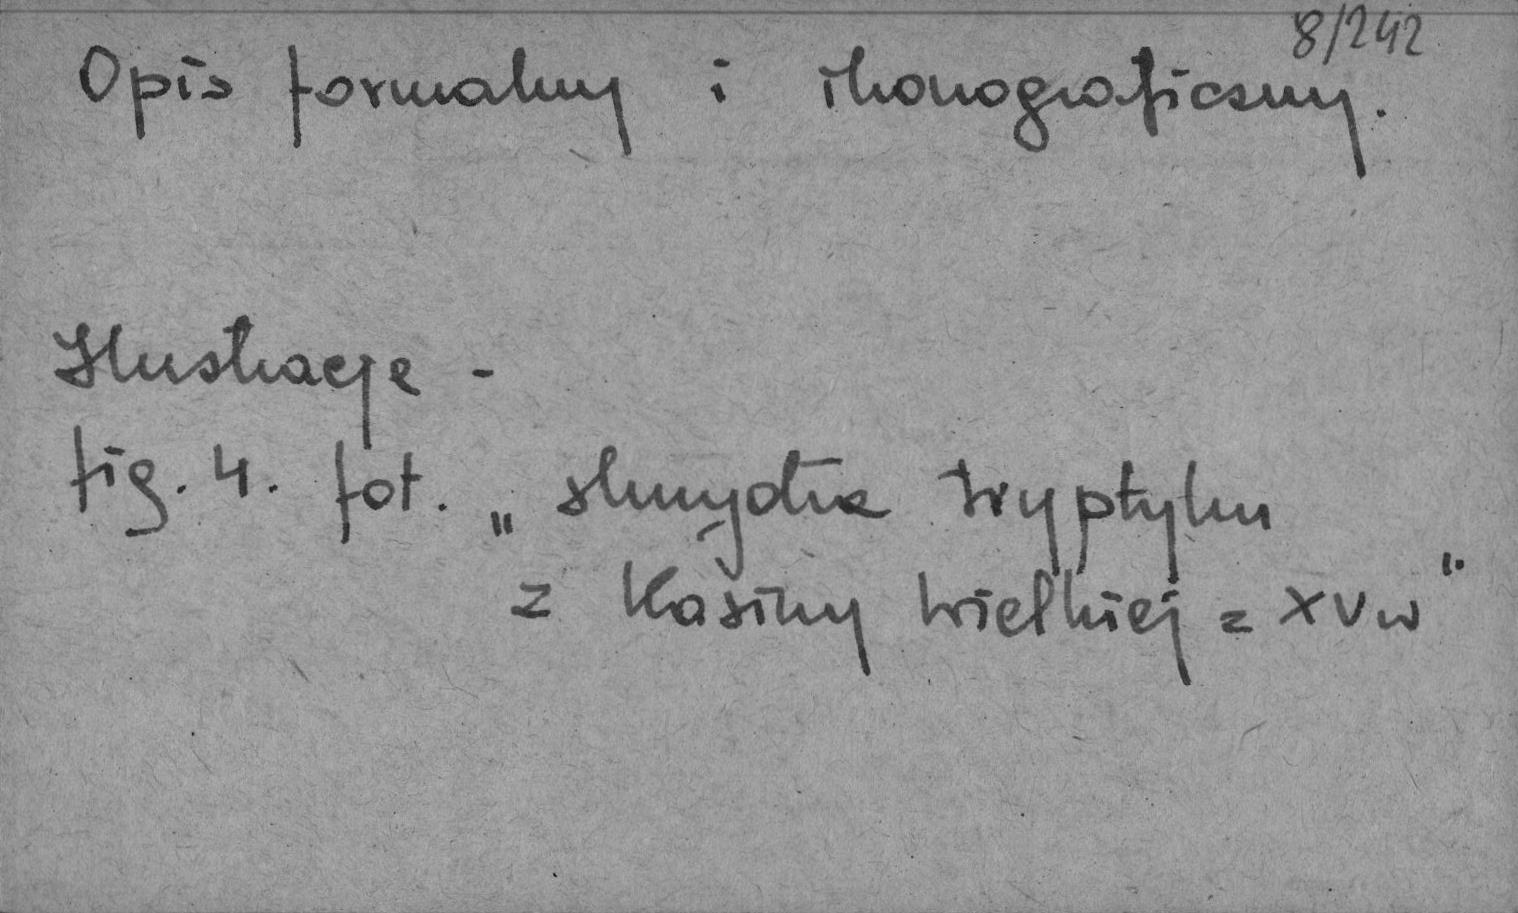 8/242
Opis formalny i ikonograficzny.
Ilustracje -
fig. 4. fot. „skrzydła tryptyku
z Kasiny Wielkiej z XV w"